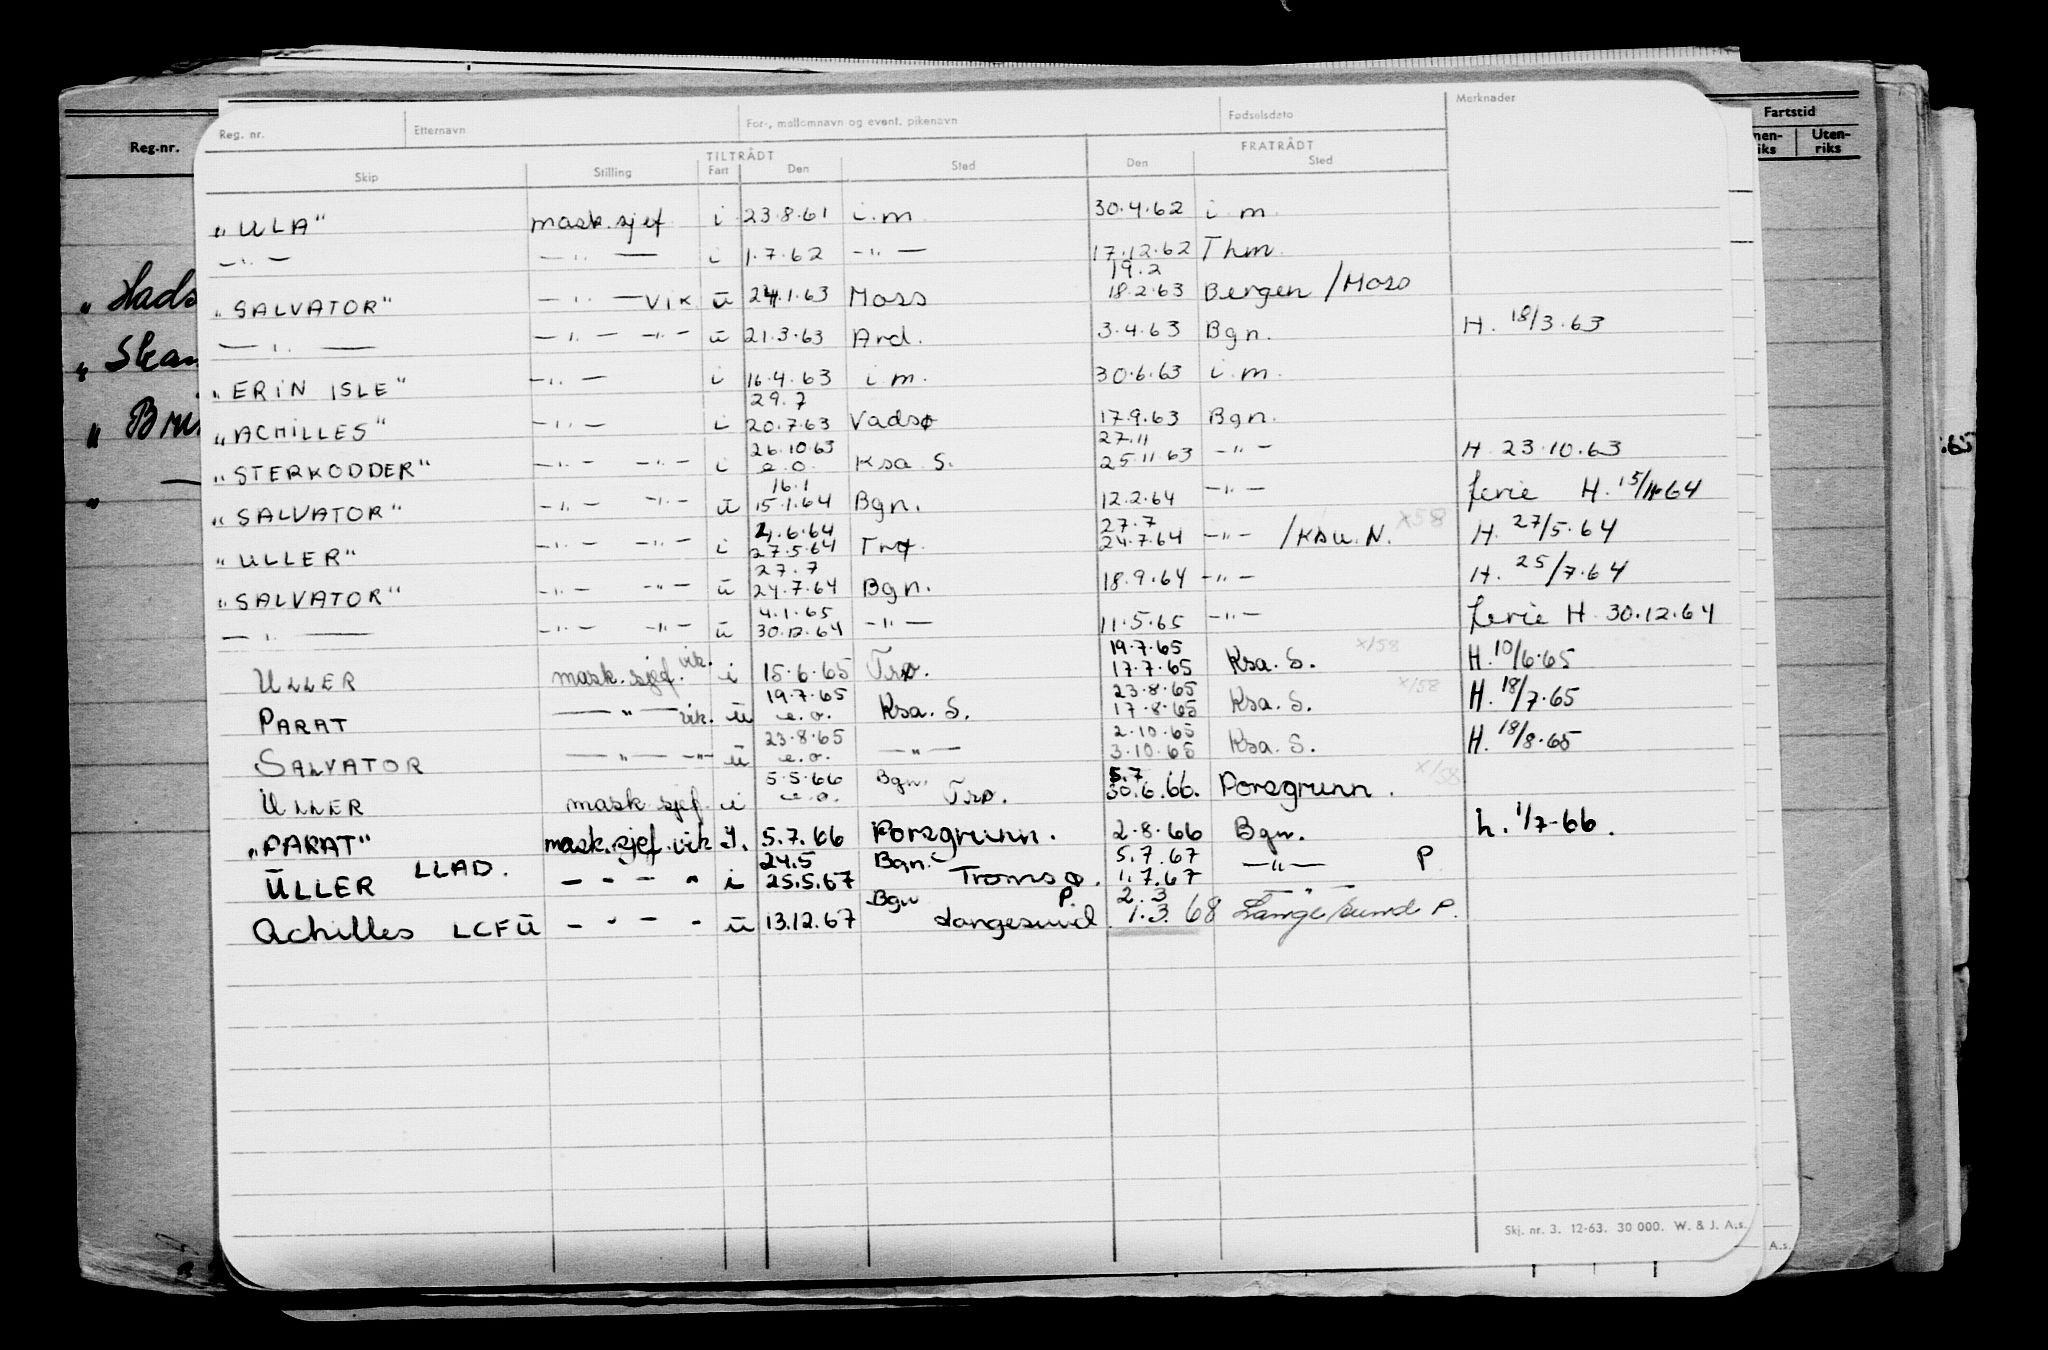 Reg. nr. Etternavn For-, mellomnavn og event. pikenavn Fødselsdato Merknader
TILTRÅDT FRATRÅDT
Skip Stilling Fart Den Sted Den Sted
"ULA" mask.sjef i 23.8.61 i.m. 30.4.62 i.m.
—"— —"— i 1.7.62 —"— 17.12.62 Thm.
19.2
"SALVATOR" —"— VIK ü 24.1.63 Moss 18.2.63 Bergen /Moss
—"— —"— —"— ü 21.3.63 Ard. 3.4.63 Bgn. H. 18/3.63
"ERIN ISLE" —"— i 16.4.63 i.m. 30.6.63 i.m.
29.7
"ACHILLES" —"— i 20.7.63 Vadsø 17.9.63 Bgn.
26.10.63 27.11
"STERKODDER" —"— —"— i e.o. Ksa S. 25.11.63 —"— H. 23.10.63
16.1
"SALVATOR" —"— —"— ü 15.1.64 Bgn. 12.2.64 —"— ferie H. 15/1-64
4.6.64 27.7
"ULLER" —"— —"— i 27.5.64 Trø. 24.7.64 —"— /KSU. N. X58 H. 27/5.64
27.7
"SALVATOR" —"— —"— ü 24.7.64 Bgn. 18.9.64 —"— H. 25/7.64
4.1.65
—"— —"— —"— ü 30.12.64 —"— 11.5.65 —"— ferie H. 30.12.64
19.7.65 X/58
ULLER mask.sjef. vik. i 15.6.65 Trø. 17.7.65 Ksa. S. H. 10/6.65
19.7.65 23.8.65 X/58
PARAT —"— vik. ü e.o. Ksa. S. 17.8.65 Ksa. S. H. 18/7.65
23.8.65 2.10.65
SALVATOR —"— —"— ü e.o. —"— 3.10.65 Ksa. S. H. 18/8.65
5.5.66 Bgn. 5.7 X/58
ULLER mask sjef. i e.o. Trø. 30.6.66. Porsgrunn.
"PARAT" mask.sjef.vik Y. 5.7.66 Porsgrunn. 2.8.66 Bgn. h. 1/7-66.
24.5 Bgn. 5.7.67
ÜLLER LLAD. — " — " i 25.5.67 Tromsø. 1.7.67 —"— P
Bgn P. 2.3 —"—
Achilles LCFÜ — " — " ü 13.12.67 Langesund. 1.3.68 Langesund P.
Skj. nr. 3. 12-63. 30 000. W. & J. A.s.
Reg.nr.
"Hads
"Skan
" —
Fartstid
Uten-
riks
.65
A.s.